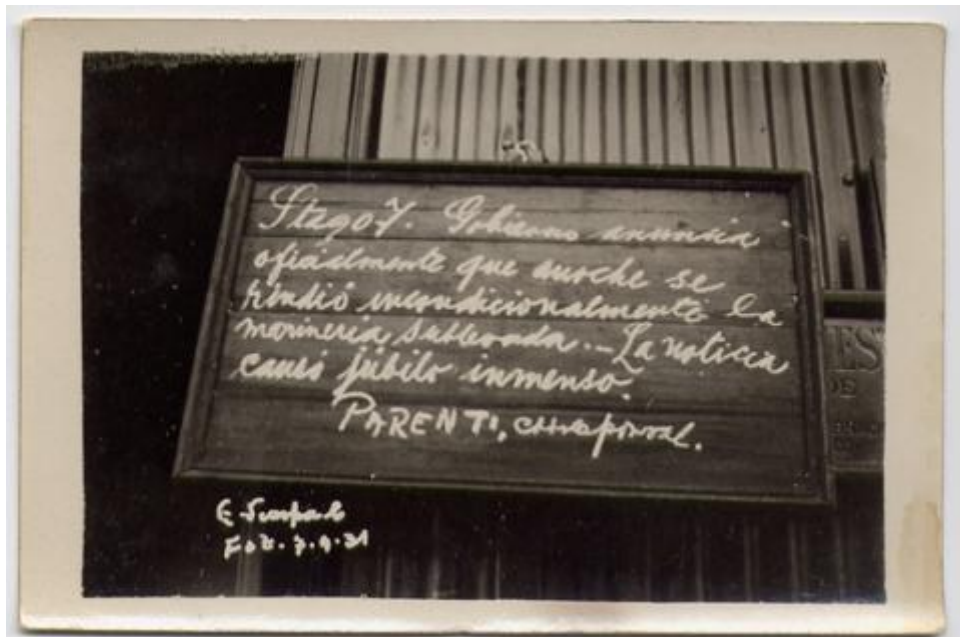 Stago 7. Gobierno anuncia
oficialmente que anoche se
rindió incondicionalmente la
marinería sublevada.- La noticia
causó júbilo inmenso.
PARENTI, corresponsal.
ES
DE
Fot. 7.9.31